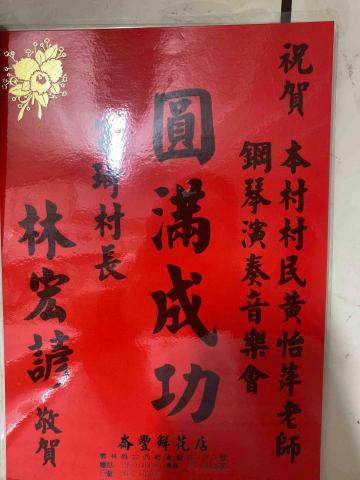 祝賀
本村村民黃怡萍老師
鋼琴演奏音樂會
圓滿成功
琦村長
林宏諺敬賀
喬豐鮮花店